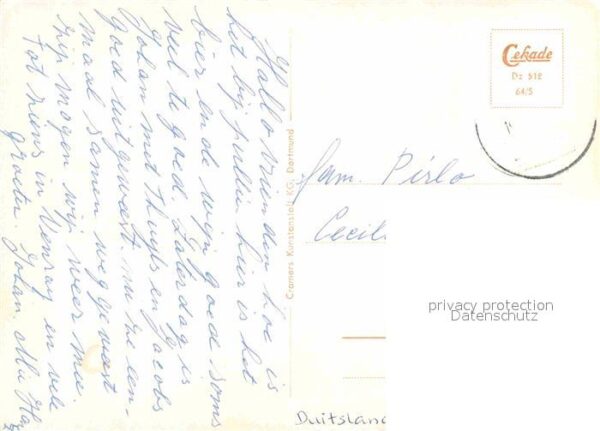 Hallo vrienden hoe is
het bij jullie hier is het
bier en de wijn goed soms
veel te goed. Zaterdag is
Johan met Thuyls en Jacobs
goed uitgeweest. nu ze een-
maal samen weg geweest
zijn mogen wij weer mee.
Tot ziens in Venray en vele
groeten Johan
Cramers Kunstanstalt KG, Dortmund
Cekade
Dz 512
64/5
Fam. Pirlo
Cecil
privacy protection
Datenschutz
Duitsland